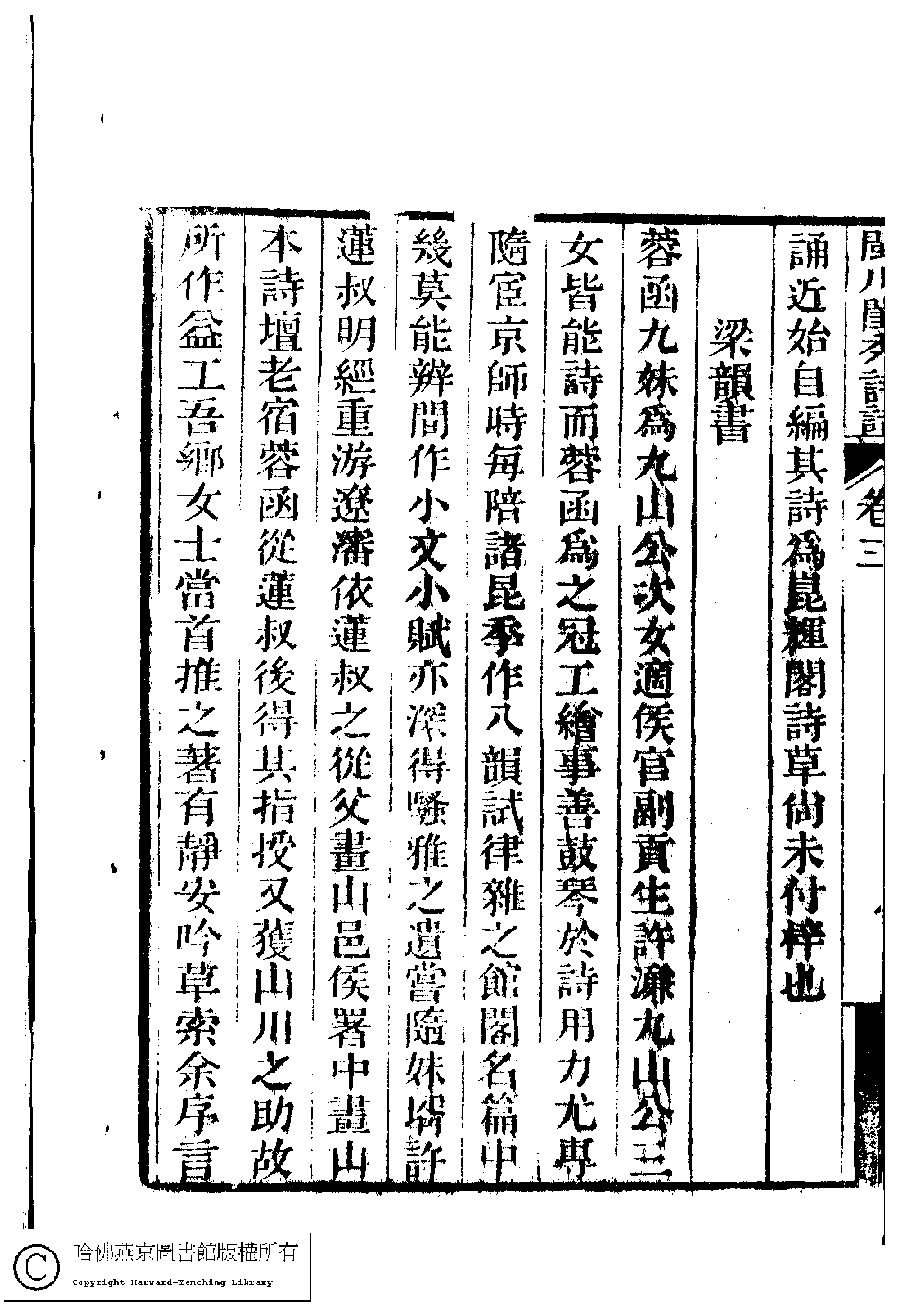 閩川閨秀詩話
卷三
誦近始自編其詩為崑輝閣詩草尚未付梓也
梁韻書
蓉函九妹為九山公次女適侯官副貢生許濂九山公三
女皆能詩而蓉函為之冠工繪事善鼓琴於詩用力尤專
隨宦京師時每陪諸昆季作八韻試律雜之館閣名篇中
幾莫能辨間作小文小賦亦深得騷雅之遺嘗隨妹壻許
蓮叔明經重游遼瀋依蓮叔之從父畫山邑侯署中畫山
本詩壇老宿蓉函從蓮叔後得其指授又獲山川之助故
所作益工吾鄉女士當首推之著有靜安吟草索余序言
哈佛燕京圖書館版權所有
Copyright Harvard-Yenching Library